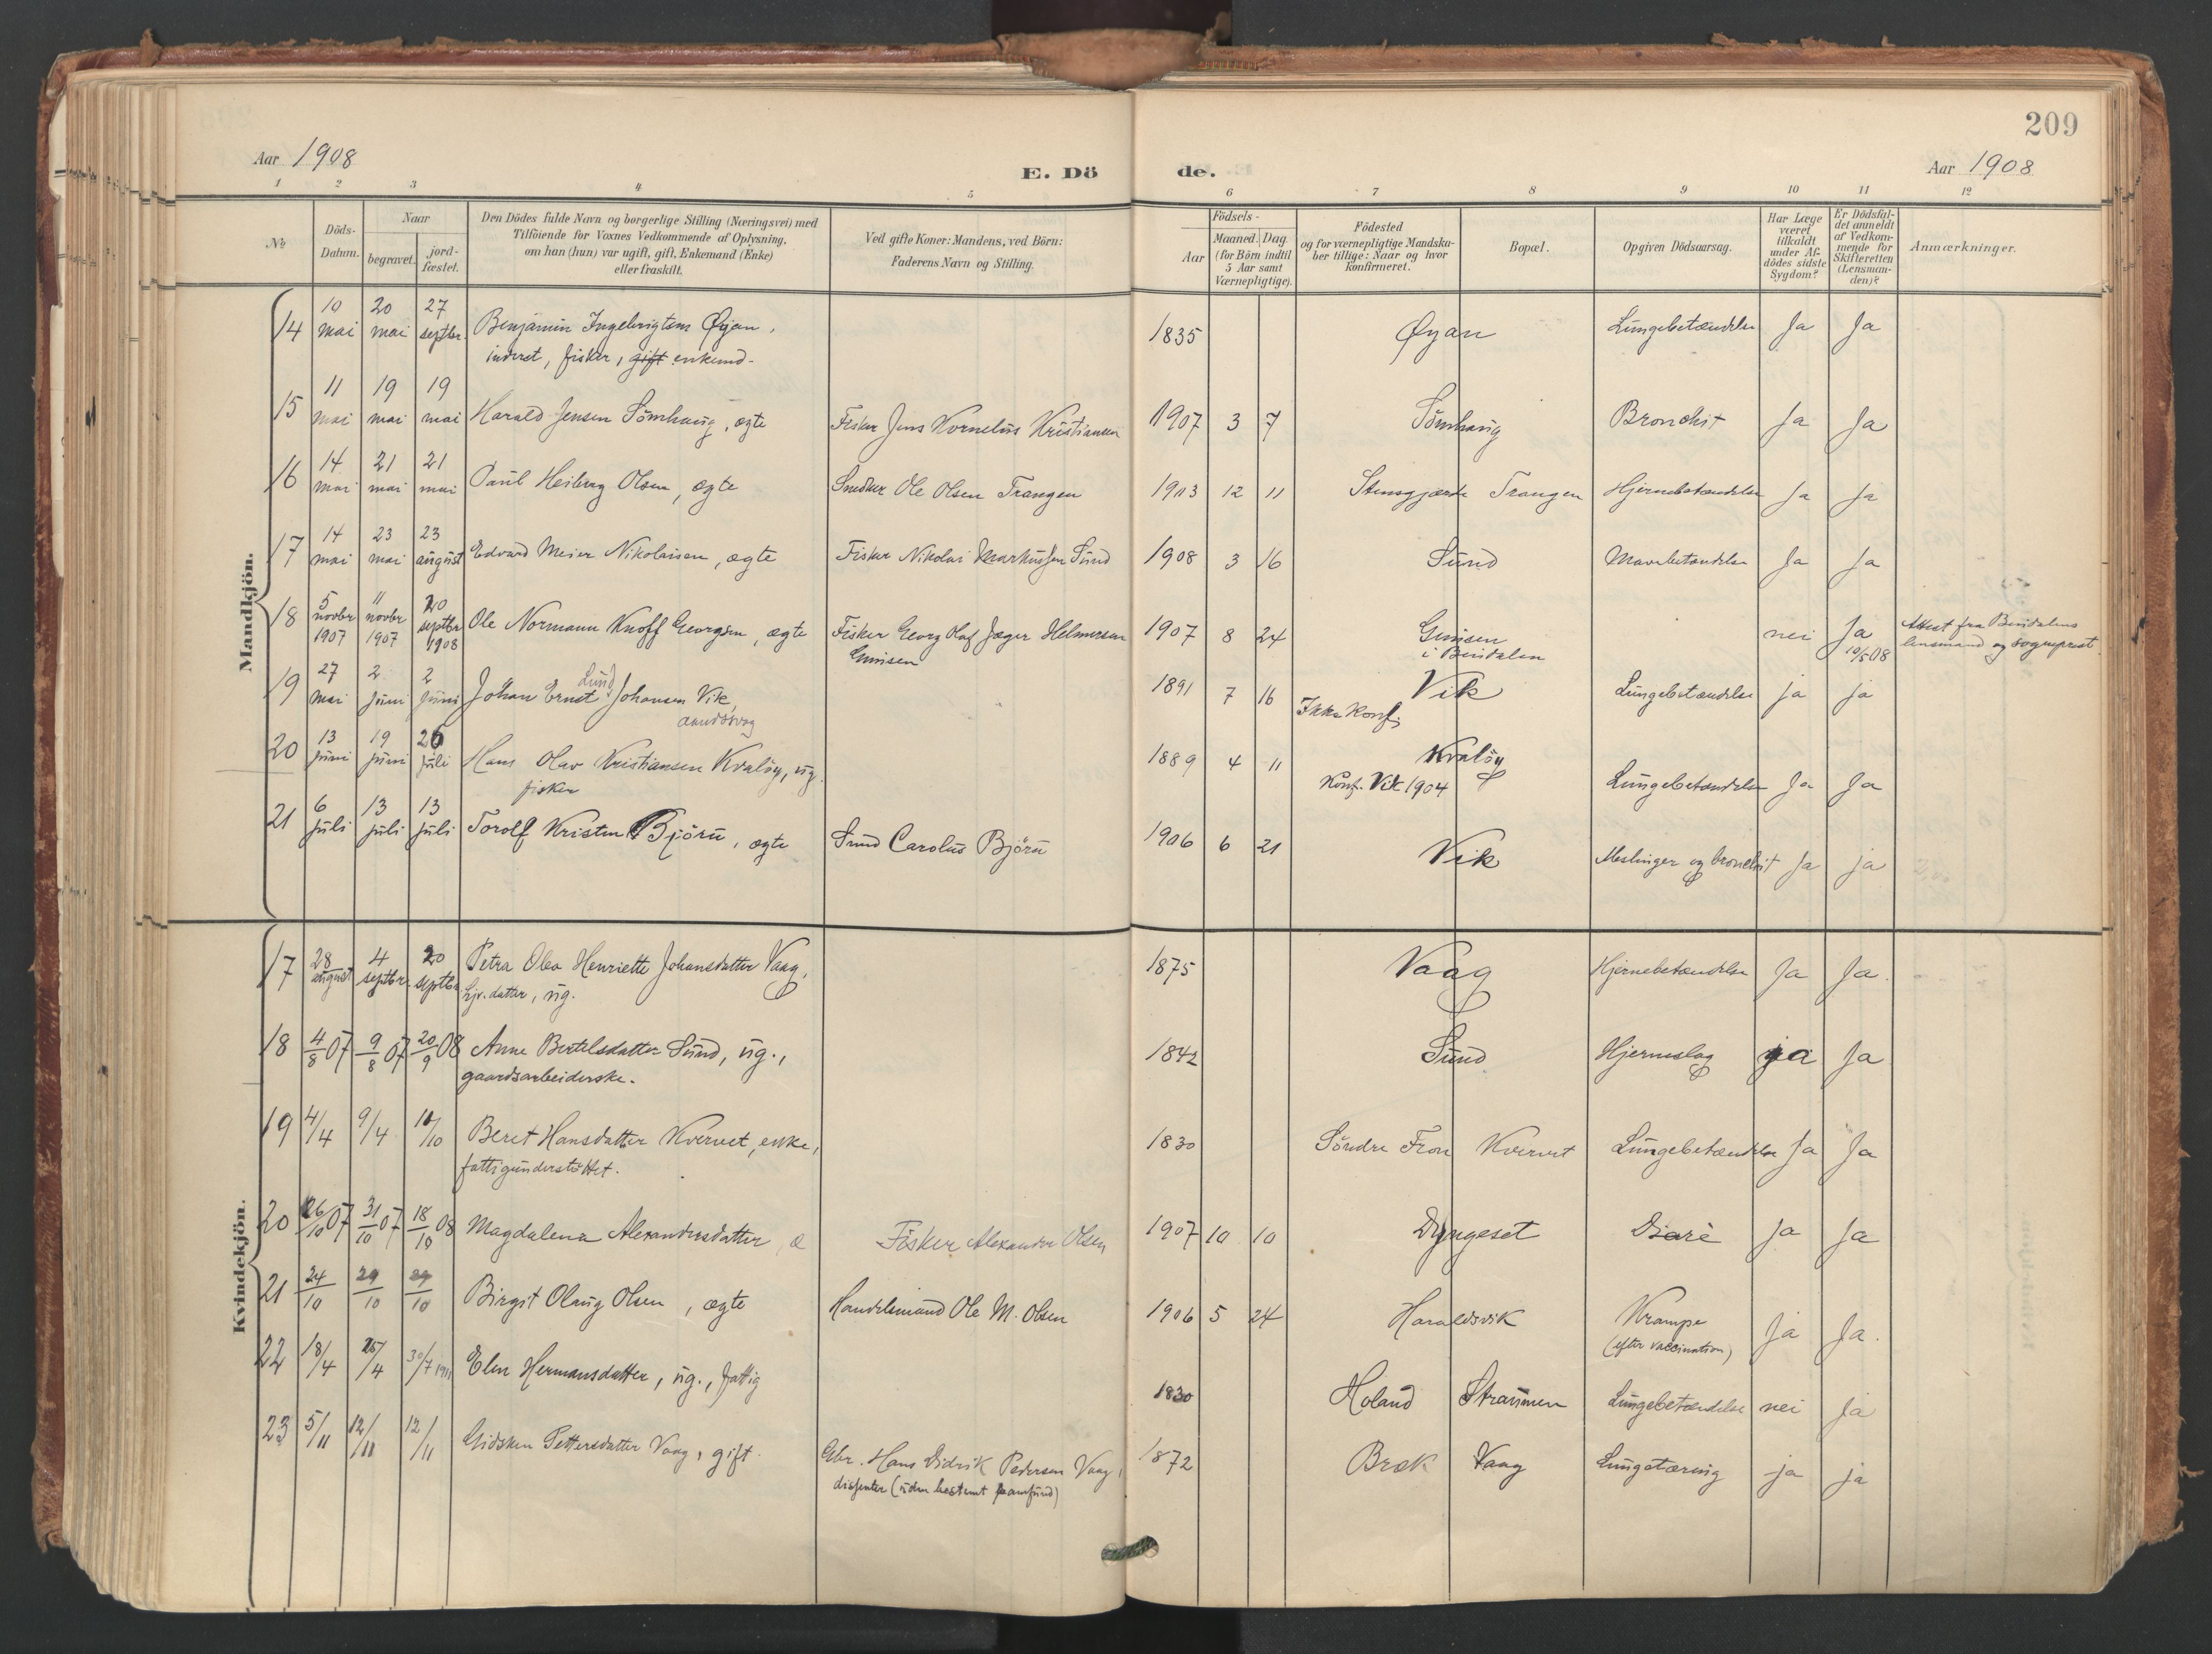 209
Aar 1908
E. Dö
de.
Aar 1908
1 2 3 4 5 6 7 8 9 10 11 12
No
Döds-
Datum.
Naar
begravet.
jord-
fæstet.
Den Dödes fulde Navn og borgerlige Stilling (Næringsvei) med
Tilföiende for Voxnes Vedkommende af Oplysning,
om han (hun) var ugift, gift, Enkemand (Enke)
eller fraskilt.
Ved gifte Koner: Mandens, ved Börn:
Faderens Navn og Stilling.
Födsels-
Aar
Maaned. Dag
(for Börn indtil
5 Aar samt
Værnepligtige).
Födested
og for værnepligtige Mandska-
ber tillige: Naar og hvor
konfirmeret.
Bopæl.
Opgiven Dödsaarsag.
Har Læge
været
tilkaldt
under Af-
dödes sidste
Sygdom?
Er Dödsfal-
det anmeldt
af Vedkom-
mende for
Skifteretten
(Lensman-
den)?
Anmærkninger.
Mandkjön.
14 10 mai 20 mai 27 septbr. Benjamin Ingebrigtsen Øyan, 1835 Øyan Lungebetændelse Ja Ja
inderst, fisker, gift enkemd.
15 11 mai 19 mai 19 mai Harald Jensen Sömhaug, ægte Fisker Jens Kornelius Kristiansen 1907 3 7 Sömhaug Bronchit Ja Ja
16 14 mai 21 mai 21 mai Paul Heiberg Olsen, ægte Snedker Ole Olsen Trangen 1903 12 11 Stensgjærde Trangen Hjernebetændelse Ja Ja
17 14 mai 23 mai 23 august Edvard Meier Nikolaisen, ægte Fisker Nikolai Markussen Sund 1908 3 16 Sund Mavebetændelse Ja Ja
18 5 novbr 1907 11 novbr 1907 20 septbr 1908 Ole Normann Knoff Georgsen, ægte Fisker Georg Olaf Jæger Helmersen 1907 8 24 nei Ja 10/5 08 Attest fra Bindalens
i Bindalen lensmand og sogneprest.
19 27 mai 2 juni 2 juni Johan Ernst Lund Johansen Vik, 1891 7 16 Vik Lungebetændelse ja ja
aandssvag Ikke konf.
20 13 juni 19 juni 26 juli Hans Olav Kristiansen Kvalöy, ug. 1889 4 11 Kvalöy
fisker Konf. Vik 1904 Lungebetændelse Ja Ja
21 6 juli 13 juli 13 juli Torolf Kristen Björu, ægte Smed Carolus Björu 1906 6 21 Vik Meslinger og bronchit Ja ja
Kvindekjön.
17 28 august 4 septbr. 20 septbr. Petra Olea Henriette Johansdatter Vaag, 1875 Vaag Hjernebetændelse Ja Ja.
Gjr.datter, ug.
18 4/8 07 9/8 07 20/9 08 Anne Bertelsdatter Sund, ug., 1842 Sund Hjerneslag ja Ja
gaardsarbeiderske.
19 4/4 9/4 18/10 Beret Hansdatter Kvervet, enke, 1830 Söndre Fron Kvervet Lungebetændelse Ja Ja
fattigunderstöttet.
20 26/10 07 31/10 07 18/10 08 Magdalena Alexandersdatter, æ Fisker Alexander Olsen 1907 10 10 Dyngeset Diarè Ja Ja
21 24/10 29/10 29/10 Birgit Olaug Olsen, ægte Handelsmand Ole M. Olsen 1906 5 24 Haraldsvik Krampe Ja Ja.
(efter vaccination)
22 18/4 25/4 30/7 1911 Elen Hermansdatter, ug., fattig 1830 Holand Straumen Lungebetændelse nei Ja
23 5/11 12/11 12/11 Gidsken Pettersdatter Vaag, gift. Gbr. Hans Didrik Pedersen Vaag, 1872 Bræk Vaag Lungetæring ja ja
dissenter (uden bestemt samfund)